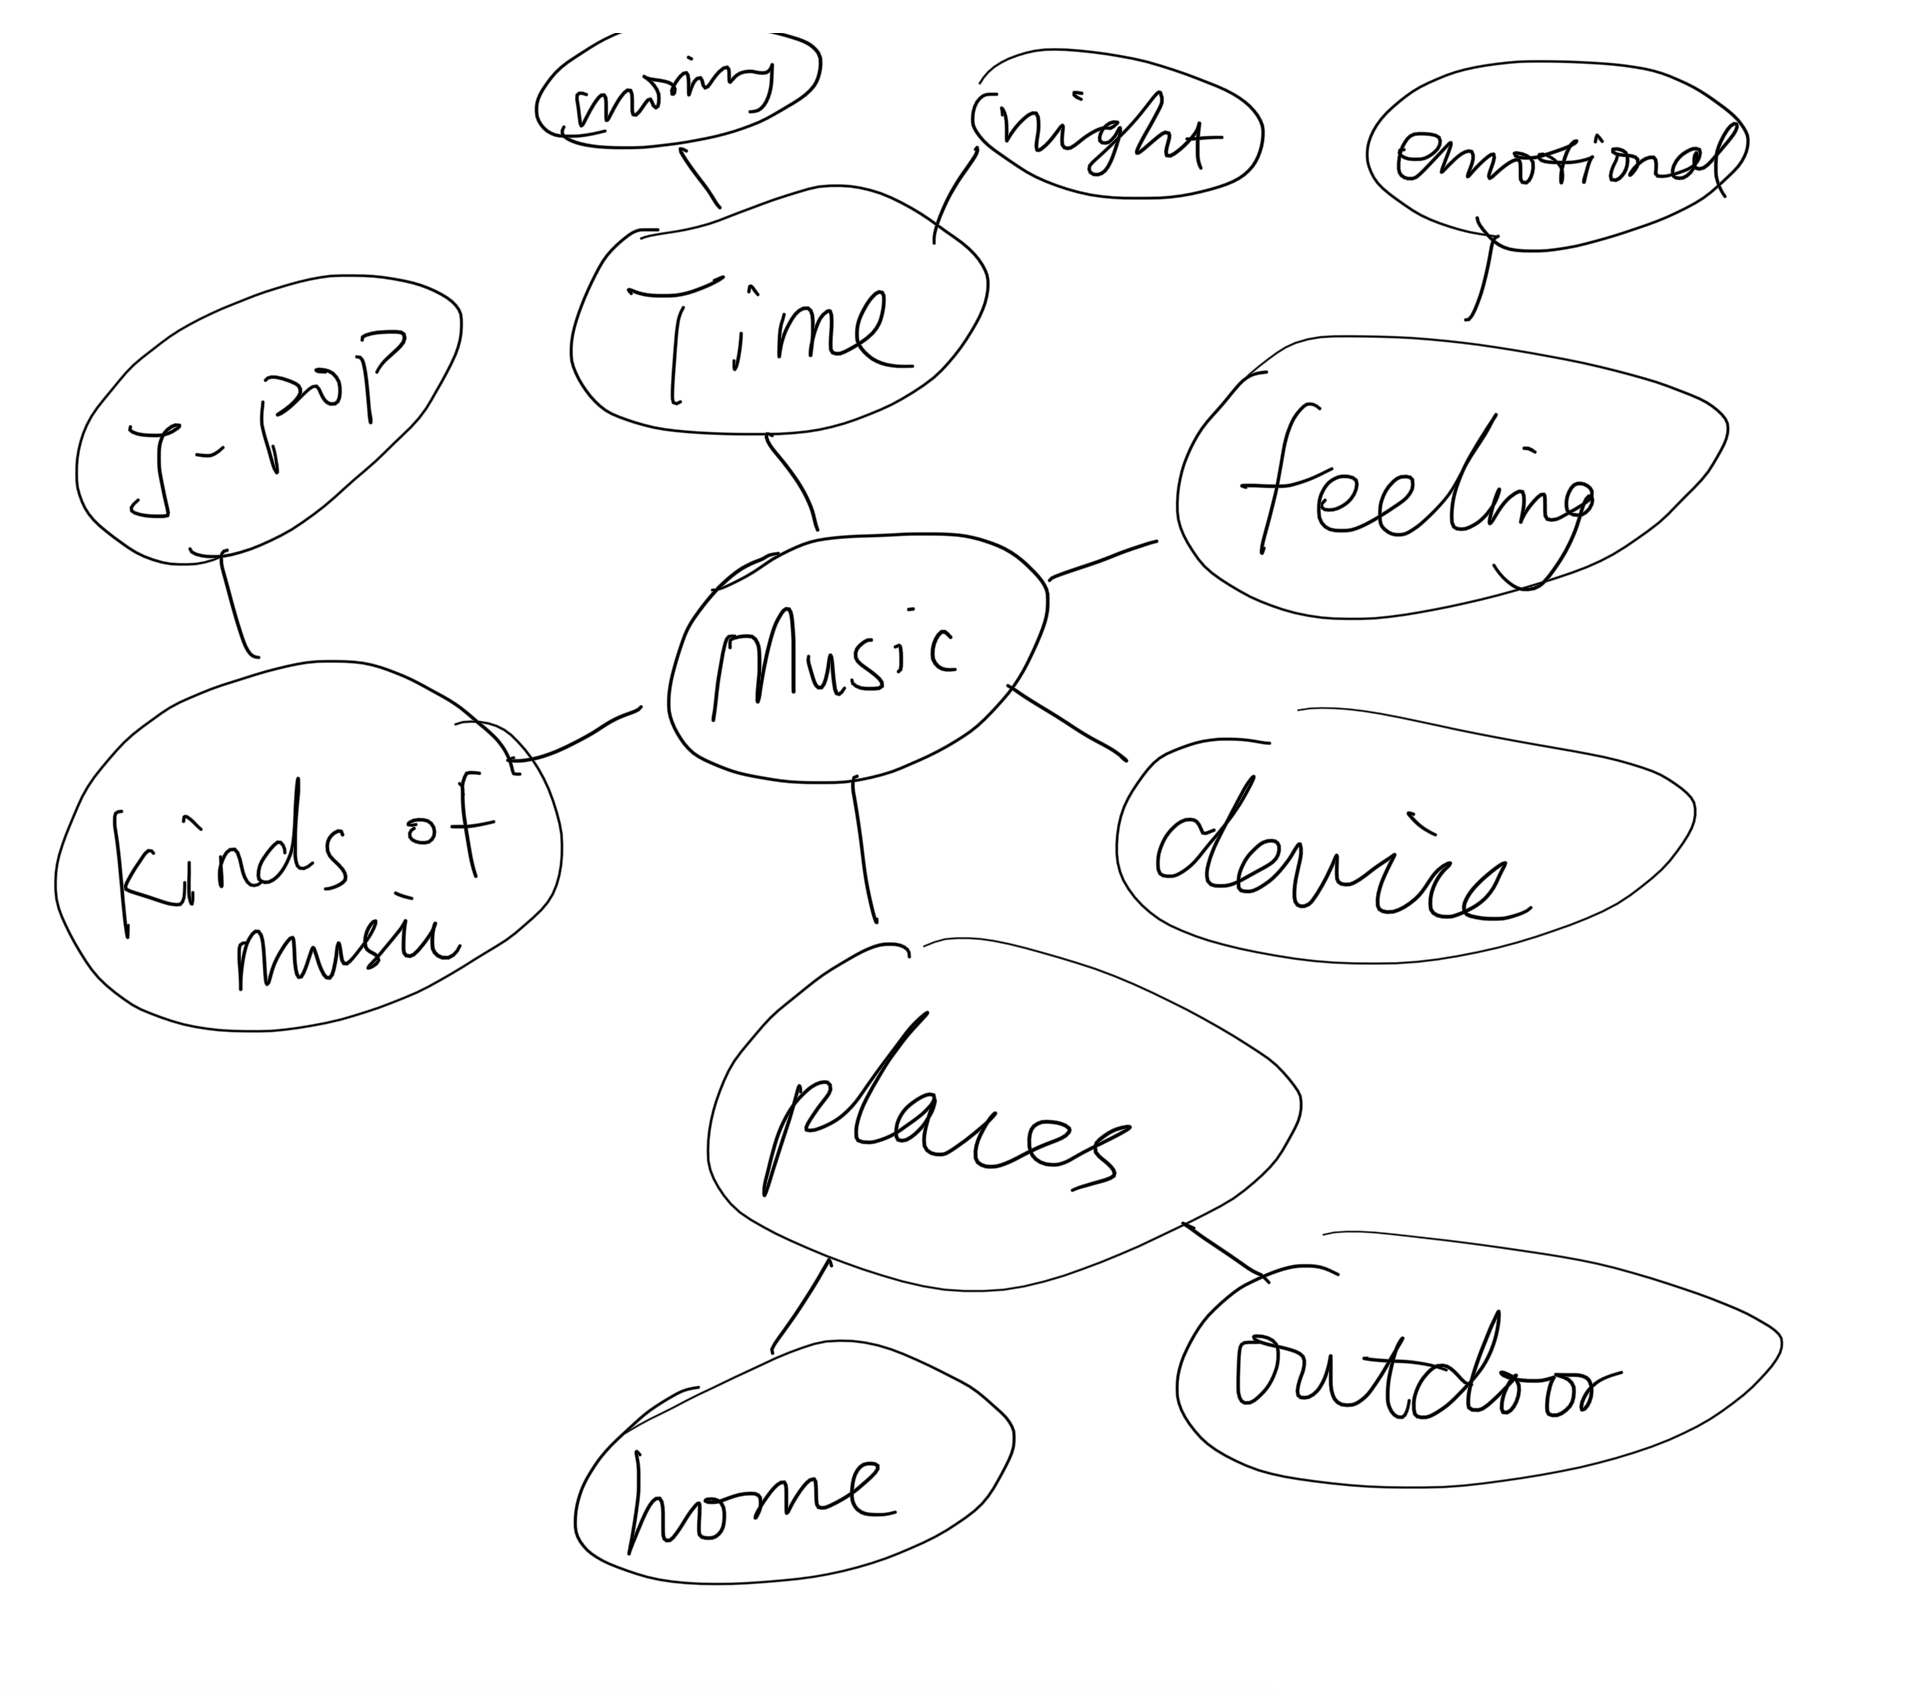 morning
night
emotional
Time
J-pop
feeling
Music
device
kinds of
music
places
outdoor
home